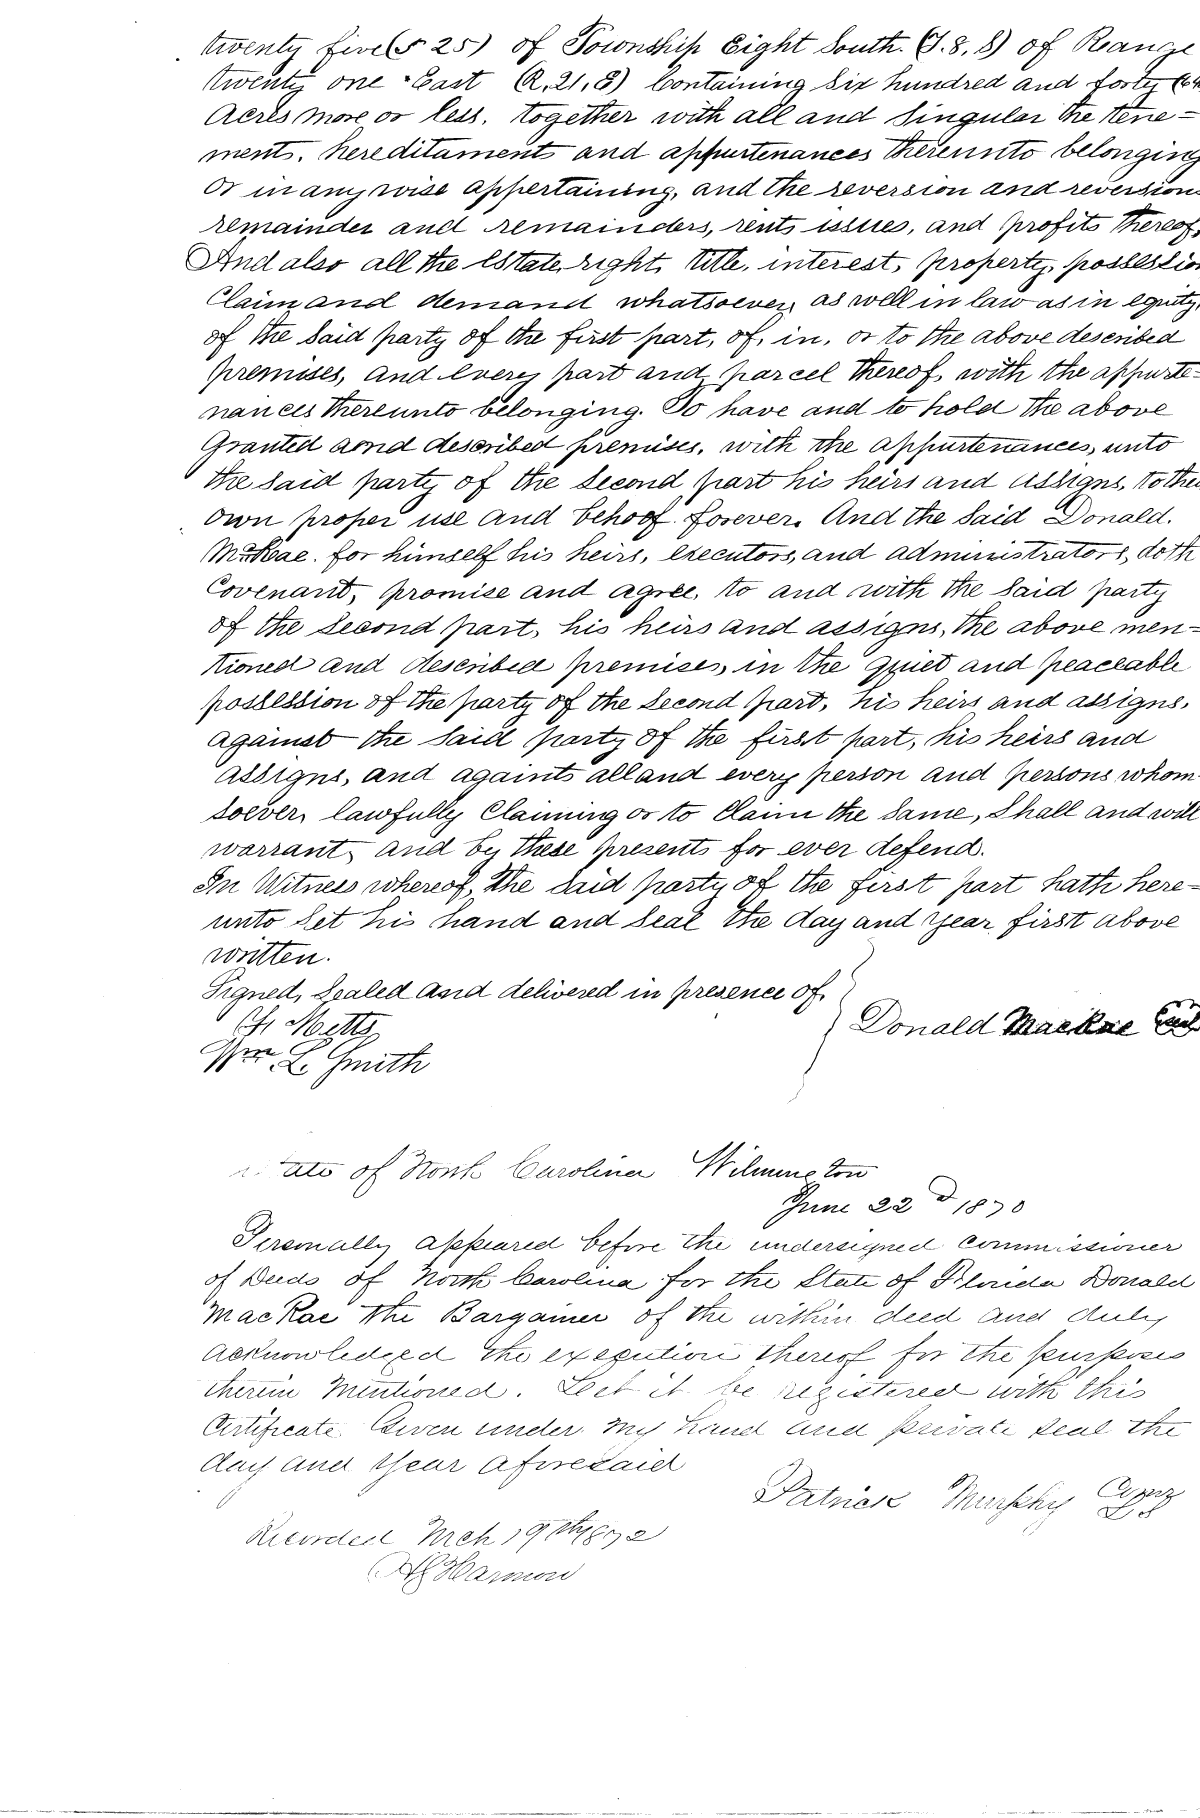 twenty five (S 25) of Township Eight South. (T. 8, S) of Reange
twenty one East (R, 21, E) Containing Six hundred and forty (64
Acres more or less, together with all and Singular the tene=
ments, hereditaments and appurtenances thereunto belonging
Or in any wise appertaining, and the reversion and reversion
remainder and remainders, rents issues, and profits thereof,
And also all the Estate, right, title, interest, property, possessio
Claim and demand whatsoever, as well in law as in equity,
of the Said party of the first part, of, in, or to the above described
premises, and every part and parcel thereof, with the appurte=
nances thereunto belonging. To have and to hold the above
Granted and described premises, with the appurtenances, unto
the Said party of the Second part his heirs and Assigns, to thei
own proper use and behoof forever. And the Said Donald.
McRae. for himself his heirs, executors, and administrators, doth
Covenant, promise and agree, to and with the Said party
of the Second part, his heirs and assigns, the above men=
tioned and described premises, in the quiet and peaceable
possession of the party of the Second part, his heirs and assigns,
against the Said party of the first part, his heirs and
assigns, and againts all and every person and persons whom
soever, lawfully Claiming or to Claim the Same, Shall and will
warrant, and by these presents for ever defend.
In Witness whereof, the Said party of the first part hath here=
unto Set his hand and Seal the day and year first above
written.
Signed, Sealed and delivered in presence of,
Metts
Donald MacRae Seal
Wm L. Smith
State of North Carolina Wilmington
June 22d 1870
Personally appeared before the undersigned commissioner
of Deeds of North Carolina for the State of Florida Donald
MacRae the Bargainer of the within deed and duly
acknowledged the execution thereof for the purposes
therein mentioned. Let it be registered with this
Certificate Given under my hand and private seal the
day and year aforesaid
Patrick Murphy
Recorded Mch 19th 1872
Harmon